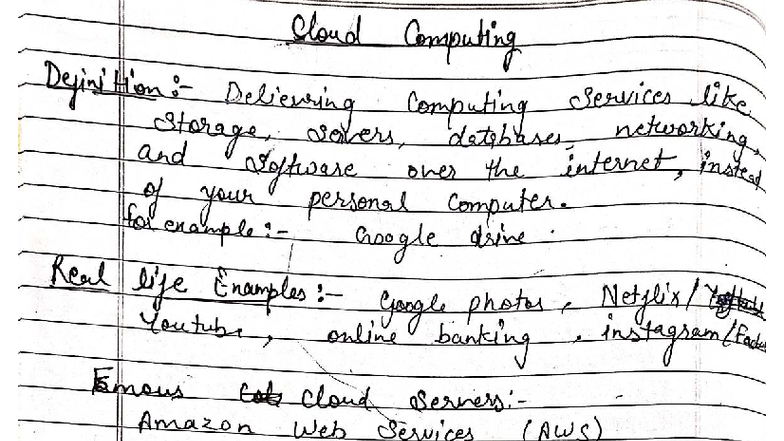 Cloud Computing
Definition:- Delievering Computing Services like
Storage, servers, databases, networking,
and software over the internet, instead
of your personal computer.
for example:- Google drive.
Real life Examples:- Google photos, Netflix/
Youtube, online banking, instagram/
Famous Cloud Servers:-
Amazon Web Services (AWS)